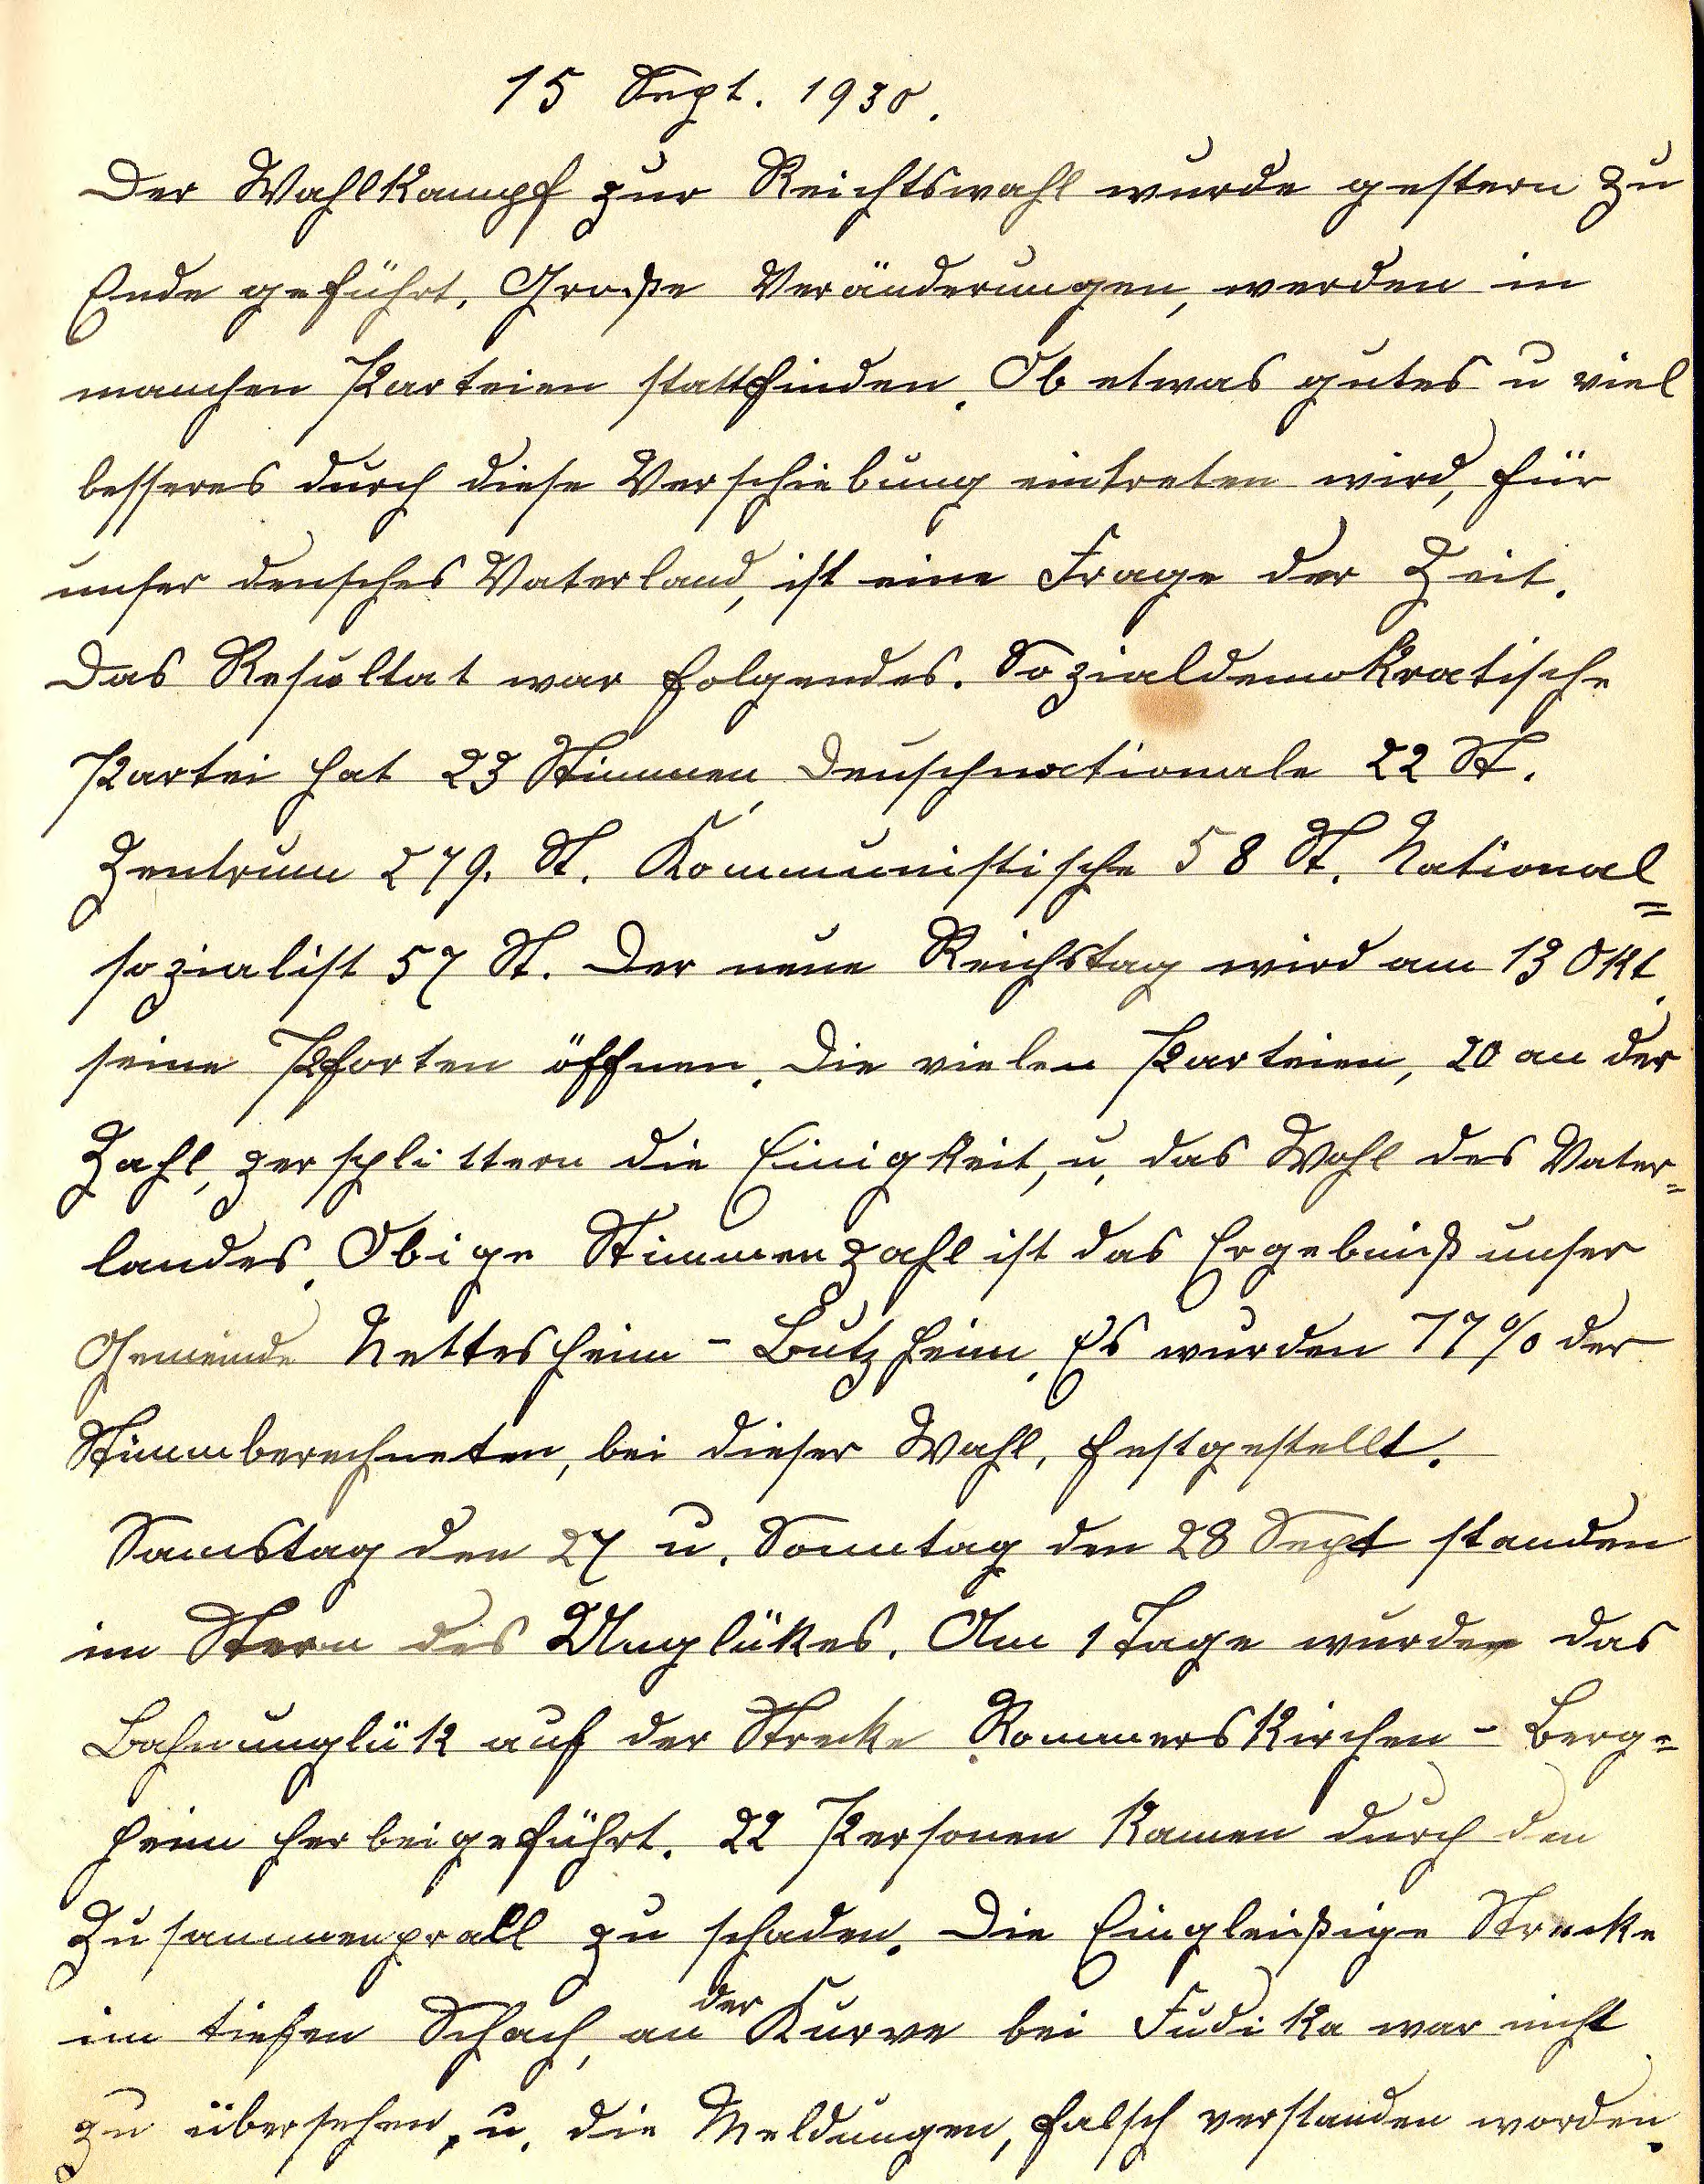 15 Sept. 1930.
Der Wahlkampf zur Reichtswahl wurde gestern zu
Ende geführt. Große Veränderungen, werden in
manchen Parteien stattfinden. Ob etwas gutes u viel
besseres durch diese Verschiebung eintreten wird, für
unser deusches Vaterland, ist eine Frage der Zeit.
Das Resultat war folgendes. Sozialdemokratische
Partei hat 23 Stimmen, Deuschnationale 22 St.
Zentrum 279. St. Kommunistische 58 St. National=
sozialist 57 St. Der neue Reichstag wird am 13 Okt.
seine Pforten öffnen. Die vielen Parteien, 20 an der
Zahl, zersplittern die Einigkeit, u. das Wohl des Vater=
landes. Obige Stimmenzahl ist das Ergebniß unser
Gemeinde Nettesheim - Butzheim. Es wurden 77% der
Stimmberechneten, bei dieser Wahl, festgestellt.
Samstag den 27 u. Sonntag den 28 Sept standen
im Stern des Unglükes. Am 1 Tage wurde das
Bahnunglük auf der Strecke Rommerskirchen - Berg=
heim herbeigeführt. 22 Personen kamen durch den
Zusammenprall zu schaden. Die Eingleißige Strecke
im tiefen Schach, an der Kurve bei Fudika war nicht
zu übersehen, u. die Meldungen, falsch verstanden worden.